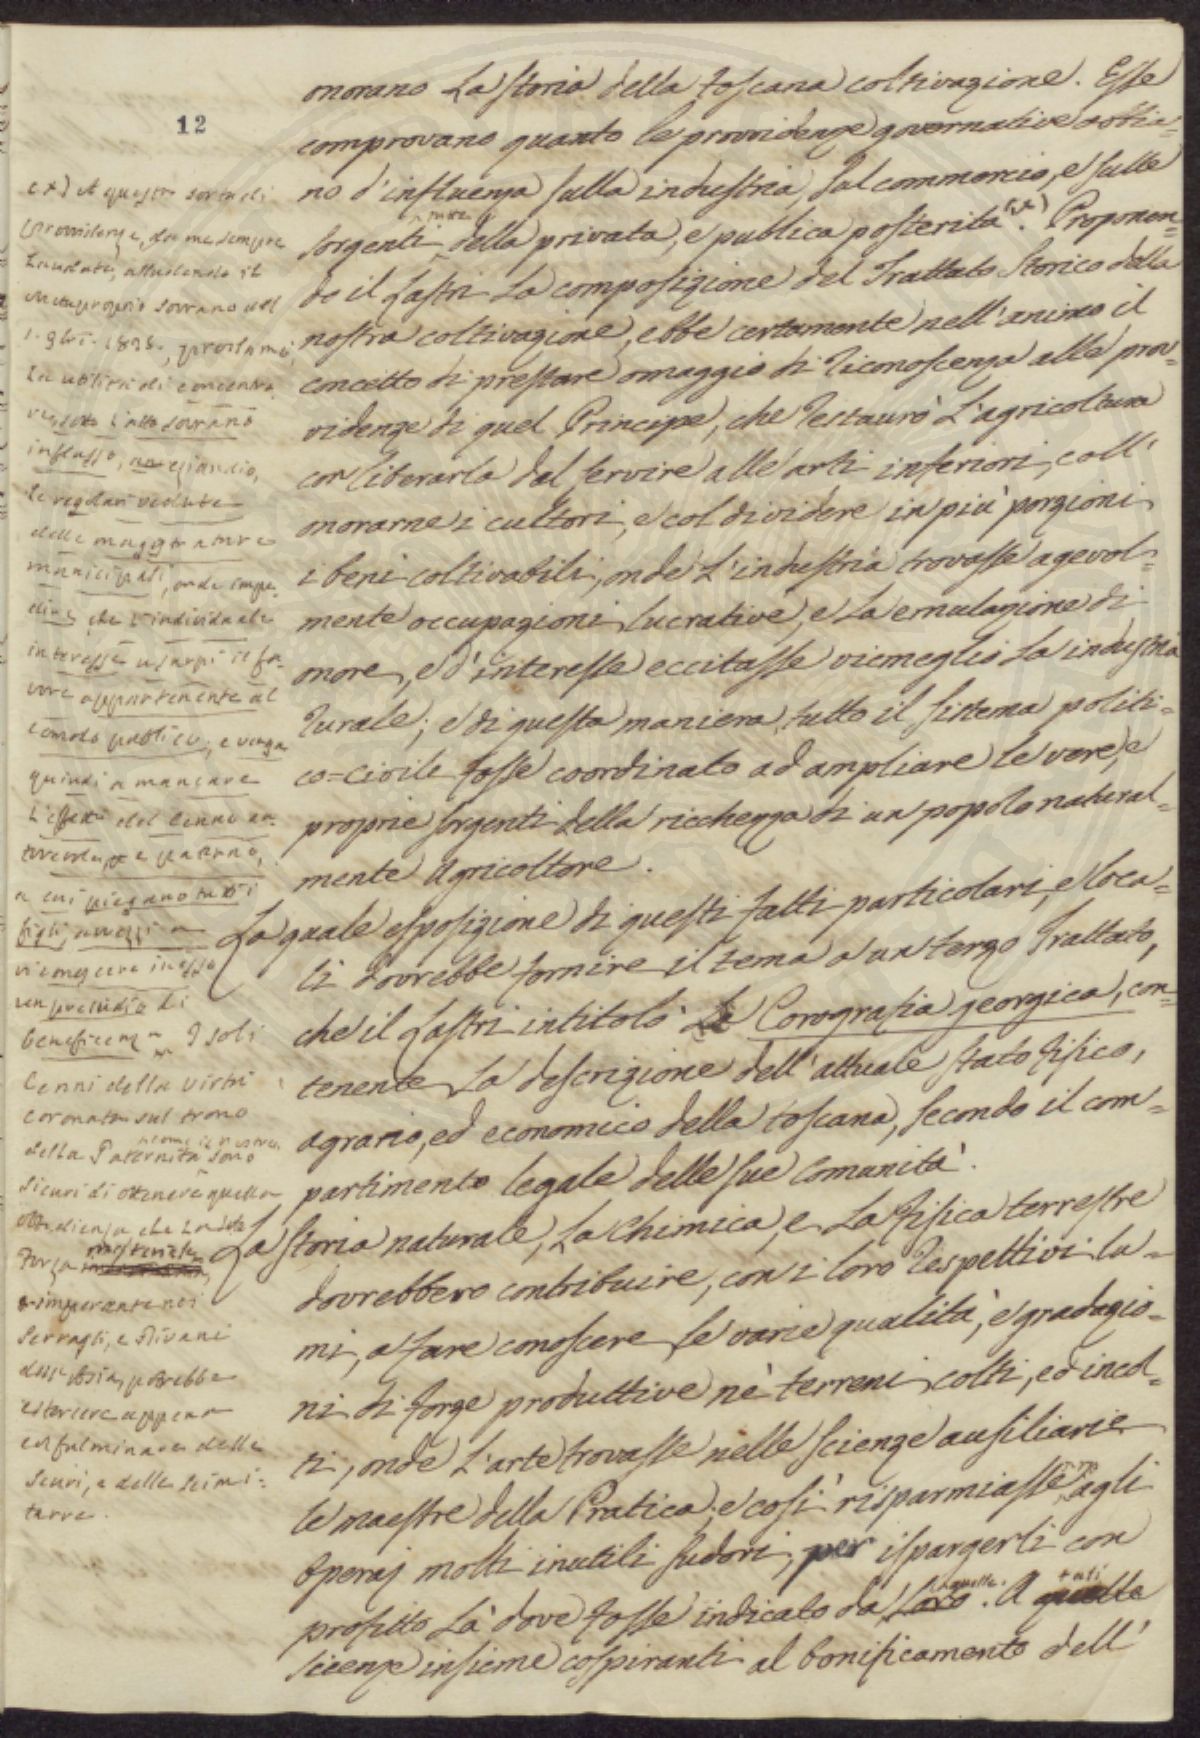 12
onorano La storia della toscana coltivazione. Esse
comprovano quanto le provvidenze governative ottie=
no d'influenza sulla industria, sul commercio, e sulle
sorgenti della privata, e publica posterita (x). Proponen=
do il Lastri La composizione del Trattato Storico della
nostra coltivazione, ebbe certamente nell'animo il
concetto di prestare omaggio di riconoscenza alle prov=
videnze di quel Principe, che restaurò L'agricoltura
con liberarla dal servire alle arti inferiori, coll'
onorarne i cultori, e col dividere in più porzioni
i beni coltivabili, onde L'industria trovasse agevol=
mente occupazioni lucrative, e La emulazione di
onore, e d'interesse eccitasse viemeglio La industria
rurale; e di questa maniera tutto il sistema politi=
co=civile fosse coordinato ad ampliare le vere, e
proprie sorgenti della ricchezza di un popolo natural=
mente agricoltore.
La quale esposizione di questi fatti particolari, e loca=
li dovrebbe fornire il tema a un terzo Trattato,
che il Lastri intitolò La Corografia georgica, con=
tenente La descrizione dell'attuale stato fisico,
agrario, ed economico della toscana, secondo il com=
partimento legale delle sue Comunità.
La storia naturale, La Chimica, e La fisica terrestre
dovrebbero contribuire, con i loro respettivi lu=
mi, a fare conoscere le varie qualità, e gradazio=
ni di forze produttive nè terreni colti, ed incol=
ti, onde L'arte trovasse nelle scienze ausiliarie
le maestre della Pratica, e così risparmiasse agli
Operaj molti inutili sudori, per ispargerli con
profitto Là dove fosse indicato da Loro quelle. A quelle tali
scienze insieme cospiranti al bonificamento dell'
(x) A questa sorta di
provvidenze, da me sempre
Laudate, alludendo il
Motuproprio Sovrano del
1. 1838., proclamò
La utilità di concentra
re, sotto L'alto sovrano
influsso, eziandio,
le regolari vedute
delle magistrature
municipali, onde impe
dire che L'individuale
interesse usurpi il fa-
vore appartenente al
comodo publico, e venga
quindi a mancare
L'effetto del Cenno au
torevole, e paterno,
a cui piegano tutti i
figli, avvezzi a
riconoscere in esso
un preludio di
beneficenza. I soli
Cenni della virtù
coronata sul trono
della Paternità come il nostro sono
sicuri di ottenere quella
obbedienza che La sola
forza materiale
imperante nei
Serragli, e Divani
dell'Asia, potrebbe
estorcere appena
col fulminare delle
Scuri, e delle scimi=
tarre.